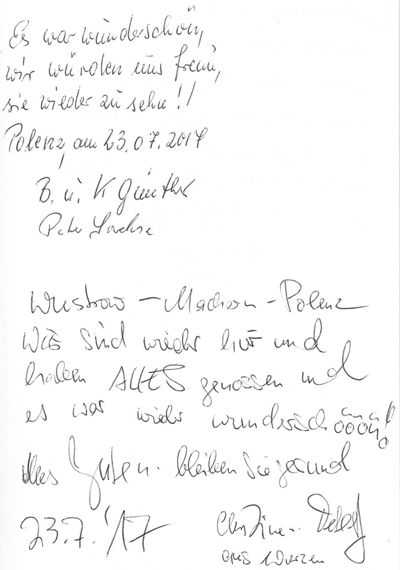 Es war wunderschön,
wir würden uns freun,
sie wieder zu sehn!!
Polenz, am 23.07.2017
B. u. K Günther
Peter
Wustrow – Machern – Polenz
Wir sind wieder hier und
haben ALLES genossen und
es war wieder wunderschöööön!
Alles Guten. bleiben Sie gesund
23.7.'17
aus Wurzen